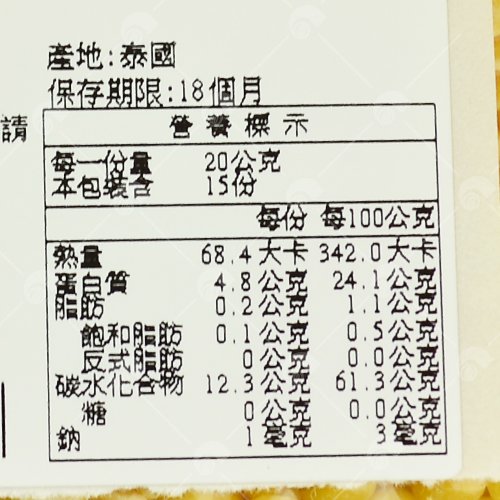 產地:泰國
保存期限:18個月
請
營養標示
每一份量 20公克
本包裝含 15份
每份 每100公克
熱量 68.4大卡 342.0大卡
蛋白質 4.8公克 24.1公克
脂肪 0.2公克 1.1公克
飽和脂肪 0.1公克 0.5公克
反式脂肪 0公克 0.0公克
碳水化合物 12.3公克 61.3公克
糖 0公克 0.0公克
鈉 1毫克 3毫克